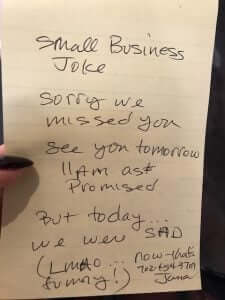 Small Business
Joke
Sorry we
missed you
see you tomorrow
11Am as
Promised
But today...
we wer SAD
(LMAO...
funny!)
now that's
Jana